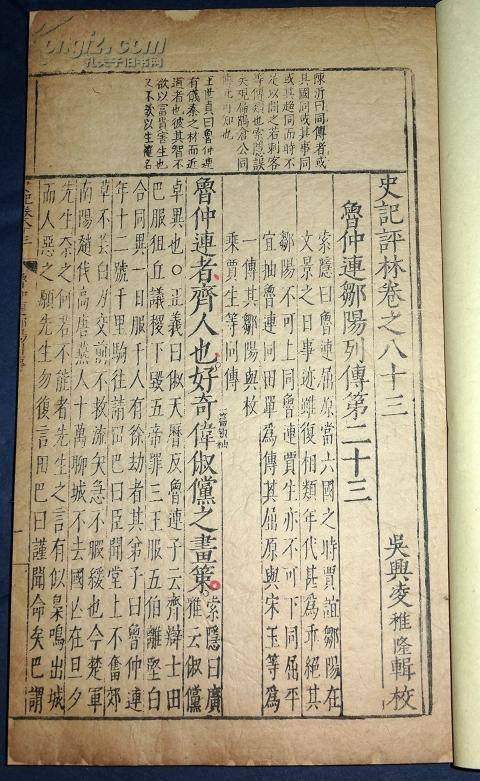 史記評林卷之八十三
吳興凌稚隆輯校
魯仲連鄒陽列傳第二十三
索隱曰魯連屈原當六國之時賈誼鄒陽在
文景之日事迹雖復相類年代甚為乖絕其
鄒陽不可上同魯連賈生亦不可下同屈平
宜抽魯連同田單為傳其屈原與宋玉等為
一傳其鄒陽與枚
乘賈生等同傳
魯仲連者齊人也好奇偉俶儻之畫策
索隱曰廣
雅云俶儻
卓異也○正義曰俶天歷反魯連子云齊辯士田
巴服狙丘議稷下毀五帝罪三王服五伯離堅白
合同異一日服千人有徐劫者其弟子曰魯仲連
年十二號千里駒往請田巴曰臣聞堂上不奮郊
草不芸白刃交前不救流矢急不暇緩也今楚軍
南陽趙伐高唐燕人十萬聊城不去國亡在旦夕
先生奈之何若不能者先生之言有似梟鳴出城
而人惡之願先生勿復言田巴曰謹聞命矣巴謂
陳沂曰同傳者或
其國同或其事同
或其趨同而時不
王世貞曰魯仲連
有儀秦之材而近
道者也彼其智不
欲以富貴害生也
又不欲以生寵名
kongfz.com
孔夫子旧书网